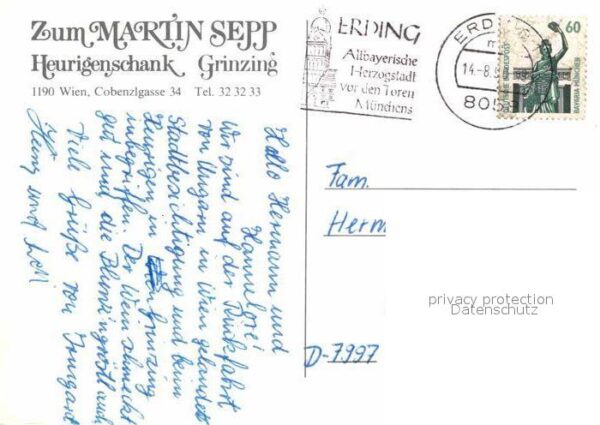 Zum MARTIN SEPP
Heurigenschank Grinzing
1190 Wien, Cobenzlgasse 34 Tel. 32 32 33
ERDING
Altbayerische
Herzogstadt
vor den Toren
Münchens
ERD
14.-8.
8058
60
DEUTSCHE BUNDESPOST
BAVARIA MÜNCHEN
Hallo Hermann und
Hannlore!
Wir sind auf der Rückfahrt
von Ungarn in Wien gelandet
Stadtbesichtigung und beim
Heurigen in Grinzing
inbegriffen. Der Wein schmeckt
gut und die Blunzngröstl auch
Viele Grüße von Irmgard
Heinz und
Fam.
Herm
D-7997
privacy protection
Datenschutz